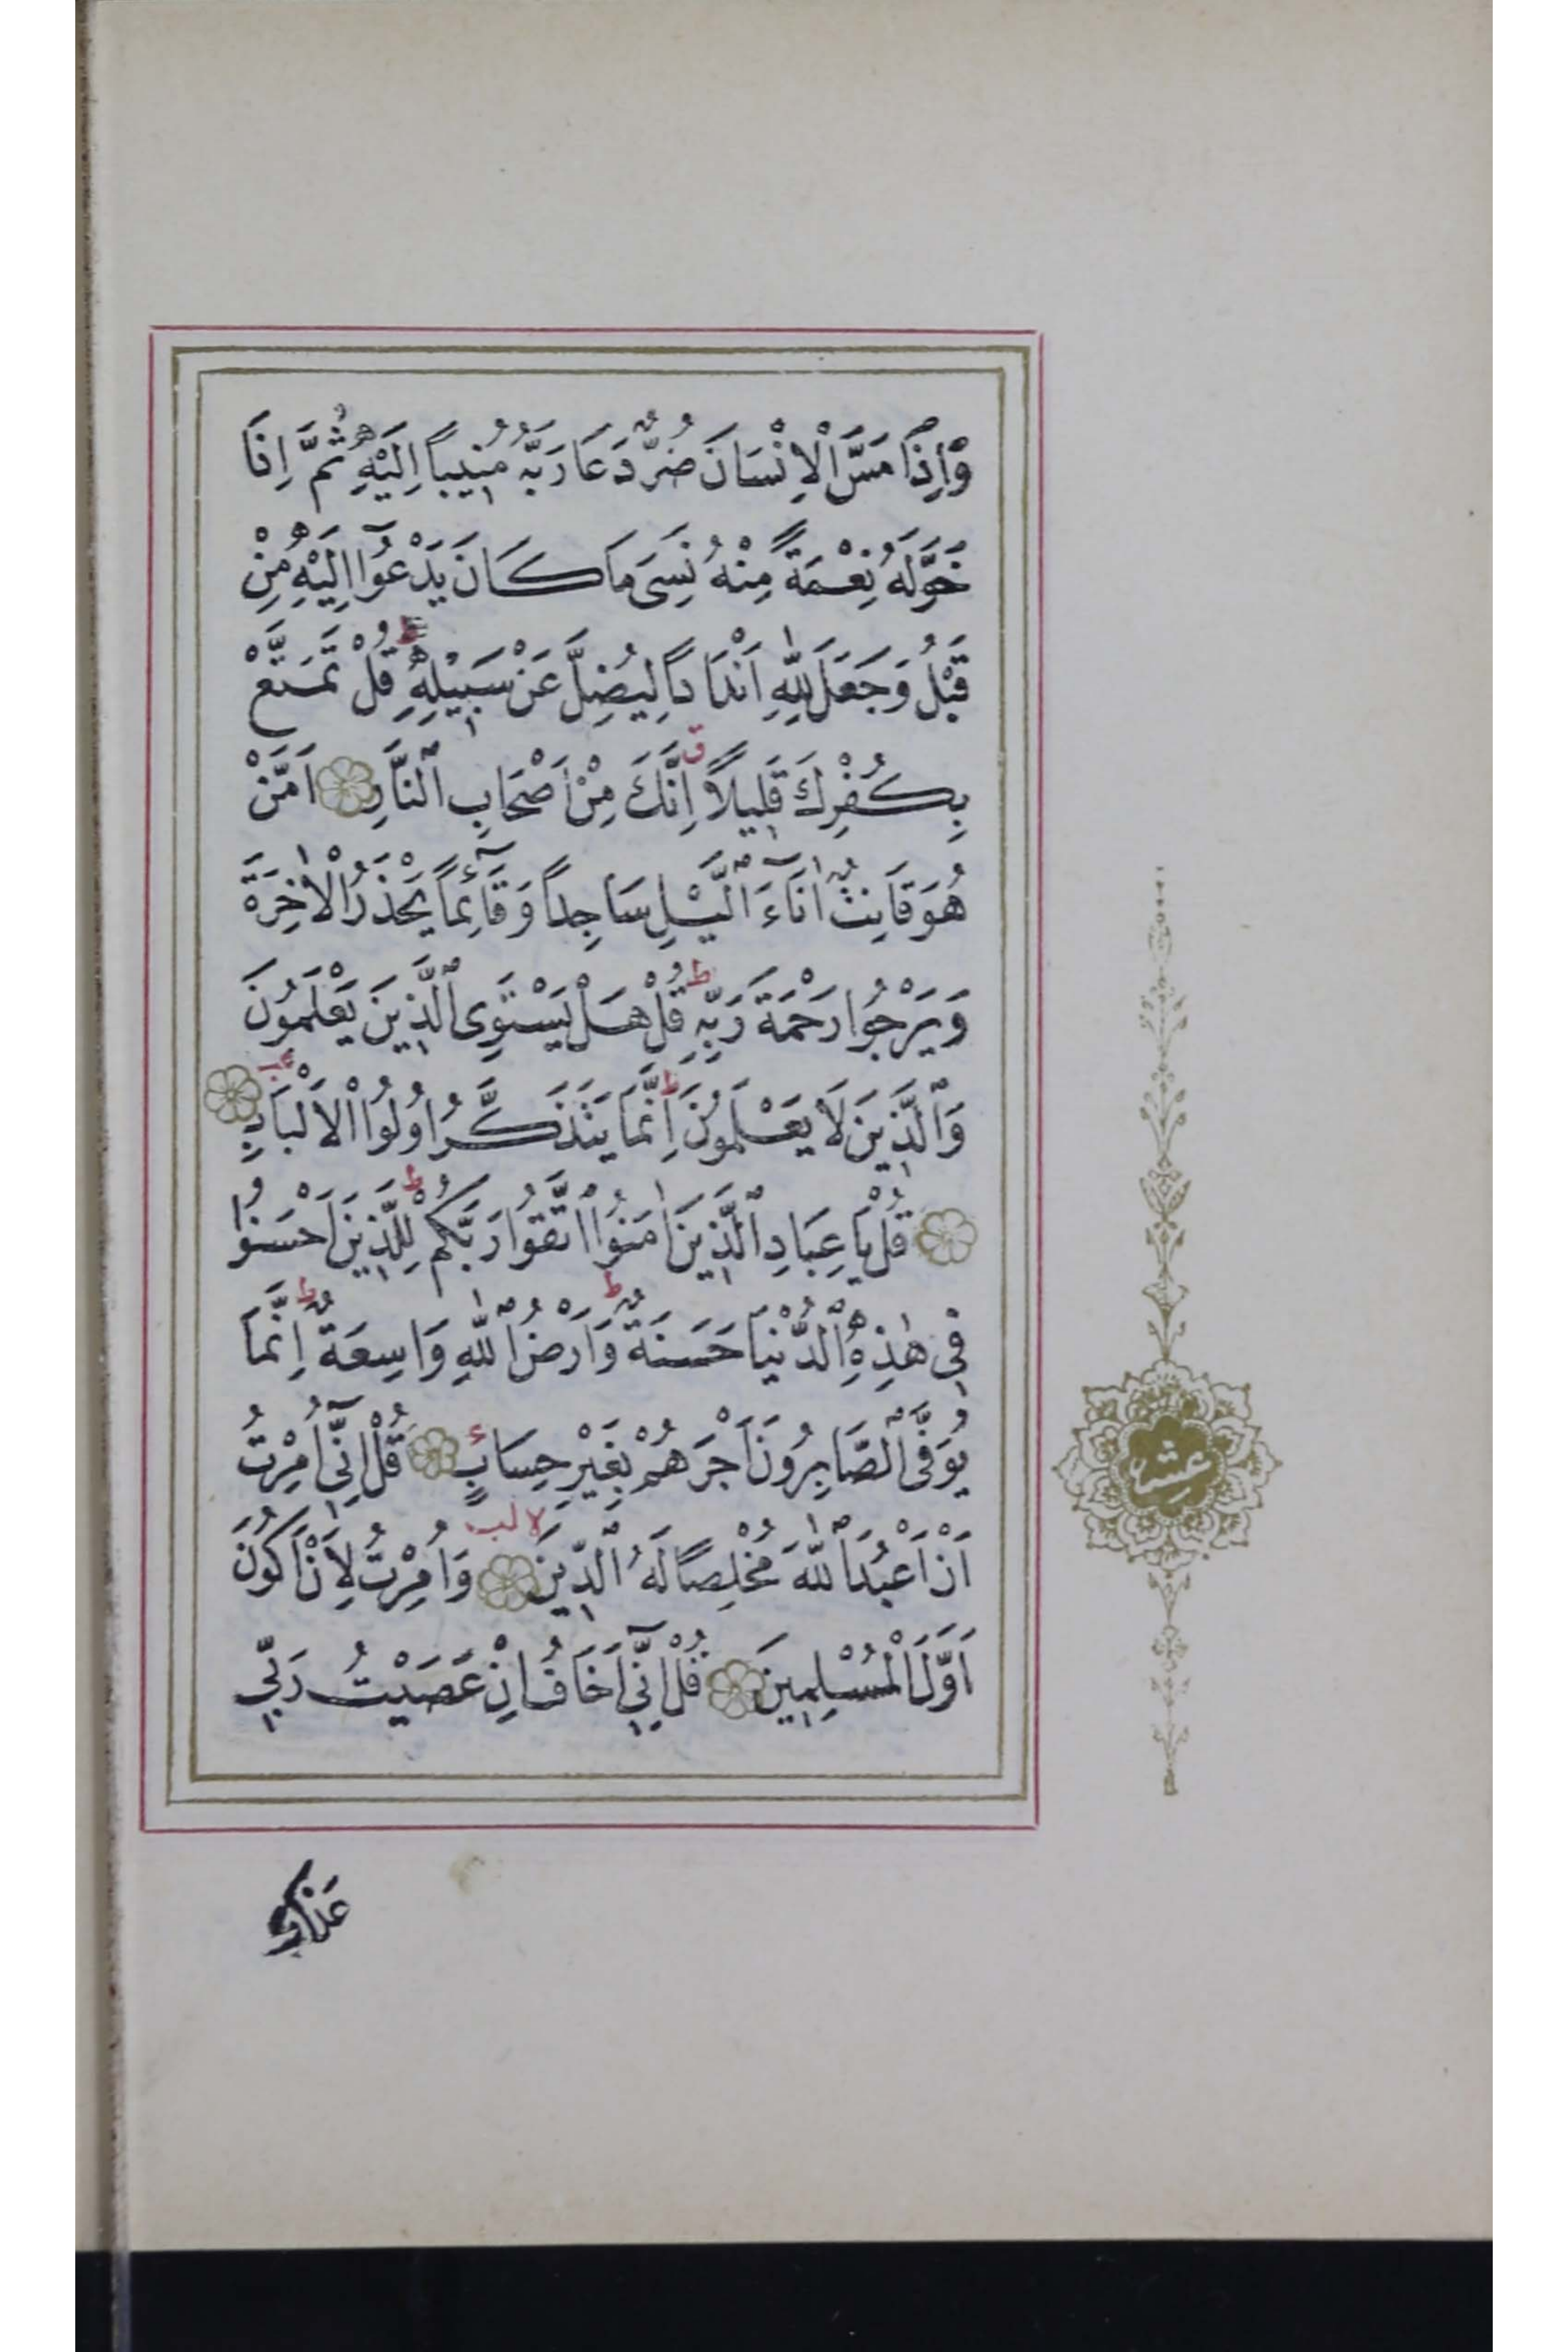 وَاِذَا مَسَّ الْاِنْسَانَ ضُرٌّ دَعَا رَبَّهُ مُنِيبًا اِلَيْهِ ثُمَّ اِذَا
خَوَّلَهُ نِعْمَةً مِنْهُ نَسِيَ مَا كَانَ يَدْعُوٓا اِلَيْهِ مِنْ
قَبْلُ وَجَعَلَ لِلّٰهِ اَنْدَادًا لِيُضِلَّ عَنْ سَبِيلِهِ ط قُلْ تَمَتَّعْ
بِكُفْرِكَ قَلِيلًا ق اِنَّكَ مِنْ اَصْحَابِ النَّارِ اَمَّنْ
هُوَ قَانِتٌ اٰنَآءَ الَّيْلِ سَاجِدًا وَقَآئِمًا يَحْذَرُ الْاٰخِرَةَ
وَيَرْجُوا رَحْمَةَ رَبِّهِ ط قُلْ هَلْ يَسْتَوِى الَّذِينَ يَعْلَمُونَ
وَالَّذِينَ لَا يَعْلَمُونَ ط اِنَّمَا يَتَذَكَّرُ اُولُوا الْاَلْبَابِ
قُلْ يَا عِبَادِ الَّذِينَ اٰمَنُوا اتَّقُوا رَبَّكُمْ ط لِلَّذِينَ اَحْسَنُوا
فِى هٰذِهِ الدُّنْيَا حَسَنَةٌ ط وَاَرْضُ اللّٰهِ وَاسِعَةٌ ط اِنَّمَا
يُوَفَّى الصَّابِرُونَ اَجْرَهُمْ بِغَيْرِ حِسَابٍ قُلْ اِنِّىٓ اُمِرْتُ
اَنْ اَعْبُدَ اللّٰهَ مُخْلِصًا لَهُ الدِّينَ لا لب وَاُمِرْتُ لِاَنْ اَكُونَ
اَوَّلَ الْمُسْلِمِينَ قُلْ اِنِّىٓ اَخَافُ اِنْ عَصَيْتُ رَبِّى
عشر
عَذَابَ